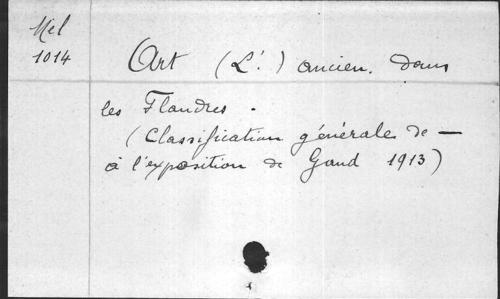 Mel
1014
Art (L'.) ancien. dans
les Flandres.
(Classification générale de —
à l'exposition de Gand 1913)